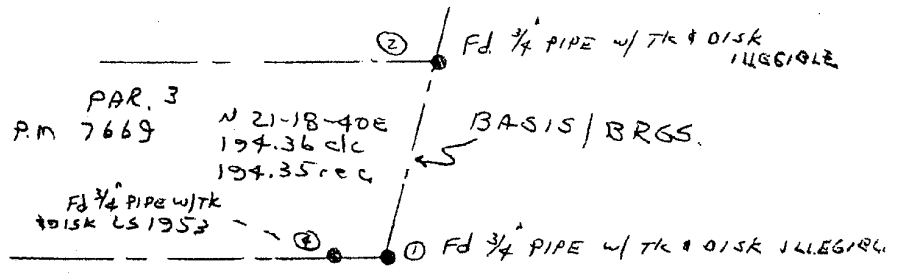 ② Fd. 3/4" PIPE w/ TK & DISK
ILLEGIBLE
PAR. 3
P.M 7669
N 21-18-40E
194.36 clc
194.35 rec
BASIS / BRGS.
Fd 3/4" PIPE w/TK
& DISK LS 1953
④
① Fd 3/4" PIPE w/ TK & DISK ILLEGIBL